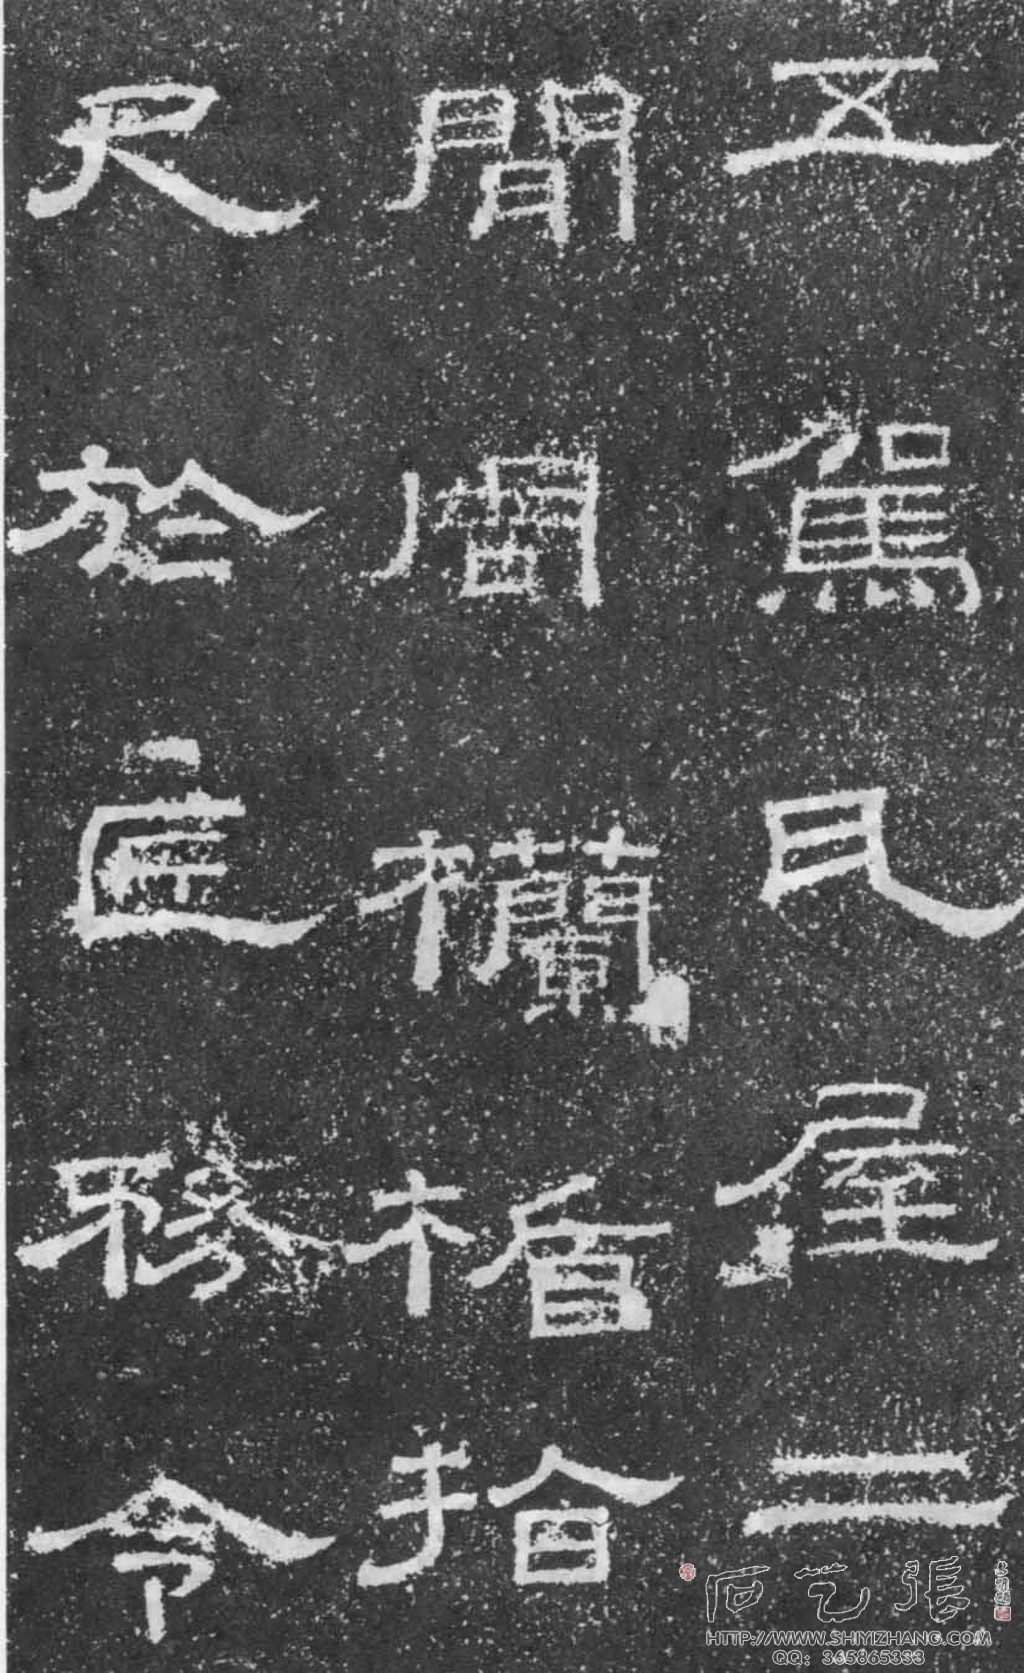 五駕瓦屋二
間周欄楯拾
尺於匠務令
石艺張
HTTP://WWW.SHIYIZHANG.COM
QQ: 365865333